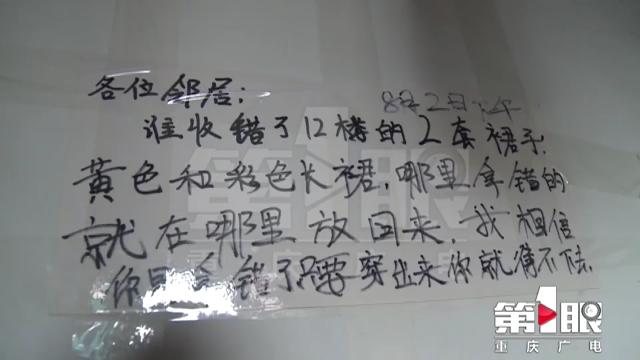 各位邻居:
8月2日下午
谁收错了12楼的2套裙子,
黄色和彩色长裙,哪里拿错的
就在哪里放回来,我相信
你是拿错了只要穿出来你就
第1眼
重庆广电